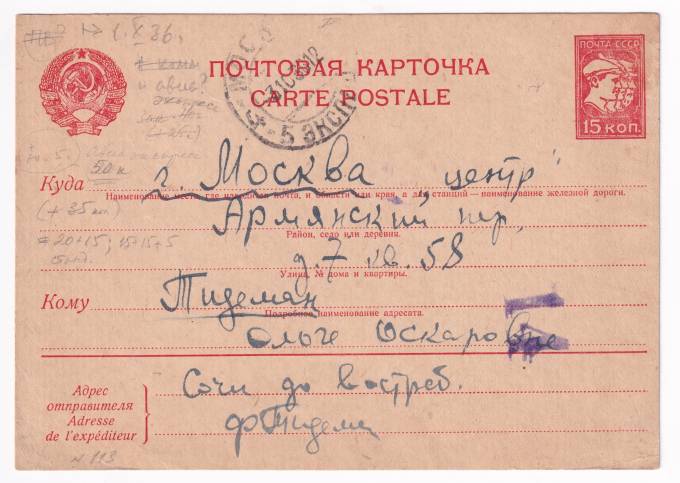 1.X 36.
ПОЧТОВАЯ КАРТОЧКА
CARTE POSTALE
ПОЧТА СССР
15 КОП.
50 к
Куда г. Москва центр
Наименование места, где находится почта, и области или края, а для станций — наименование железной дороги.
(+ 35 коп)
Армянский пер,
Район, село или деревня.
= 20+15; 15+15+5
д. 7 кв. 58
Улица, № дома и квартиры.
Кому Тидеман
Подробное наименование адресата.
Ольге Оскаровне
Адрес отправителя
Adresse de l'expéditeur
Сочи до востреб.
ФТидеман
N 113